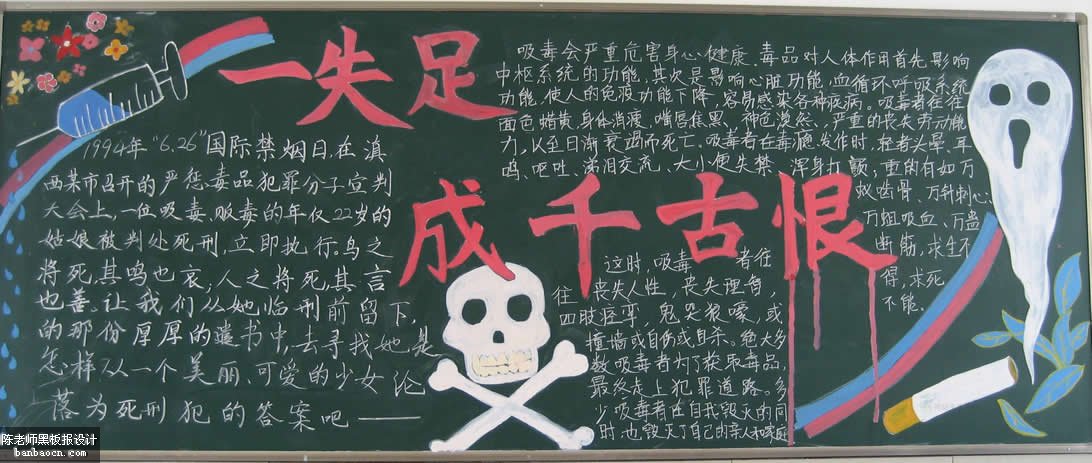 一失足
成千古恨
1994年“6.26”国际禁烟日,在滇
西某市召开的严惩毒品犯罪分子宣判
大会上,一位吸毒、贩毒的年仅22岁的
姑娘被判处死刑,立即执行。鸟之
将死,其鸣也哀,人之将死,其言
也善。让我们从她临刑前留下,
的那份厚厚的遗书中,去寻找她是
怎样从一个美丽、可爱的少女沦
落为死刑犯的答案吧——
吸毒会严重危害身心健康.毒品对人体作用首先影响
中枢系统的功能,其次是影响心脏功能,血循环呼吸系统
功能,使人的免疫功能下降,容易感染各种疾病。吸毒者往往
面色蜡黄,身体消瘦,嘴唇焦黑、神色漠然,严重的丧失劳动能
力,以至日渐衰竭而死亡。吸毒者在毒瘾发作时,轻者头晕、耳
鸣、呕吐、涕泪交流、大小便失禁、浑身打颤;重的有如万
蚁啮骨、万针刺心、
万蛆吸血、万蛊
断筋,求生不
得,求死
不能.
这时,吸毒者往
往丧失人性,丧失理智,
四肢痉挛,鬼哭狼嚎,或
撞墙或自伤或自杀。绝大多
数吸毒者为了获取毒品,
最终走上犯罪道路。多
少吸毒者在自我毁灭的同
时,也毁灭了自己的亲人和家庭
陈老师黑板报设计
banbaocn.com